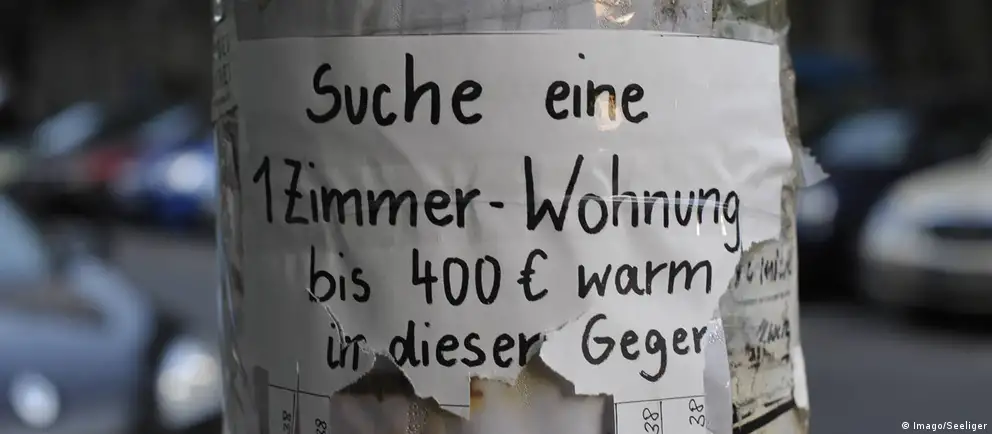 Suche eine
1 Zimmer-Wohnung
bis 400 € warm
in dieser Geger
38
38
38
© Imago/Seeliger